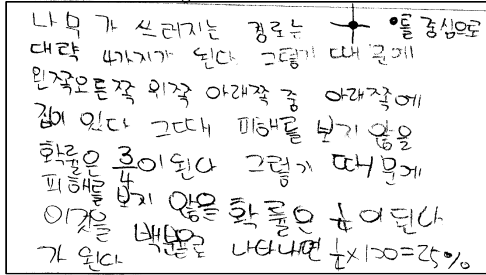 나무가 쓰러지는 경로는 •를 중심으로
대략 4가지가 된다 그렇기 때문에
왼쪽오른쪽 위쪽 아래쪽 중 아래쪽에
집이 있다 그때 피해를 보기 않을
확률은 3/4이 된다 그렇기 때문에
피해를 보지 않을 확률은 1/4이 된다
이것을 백분율로 나타내면 1/4×100=25%
가 된다